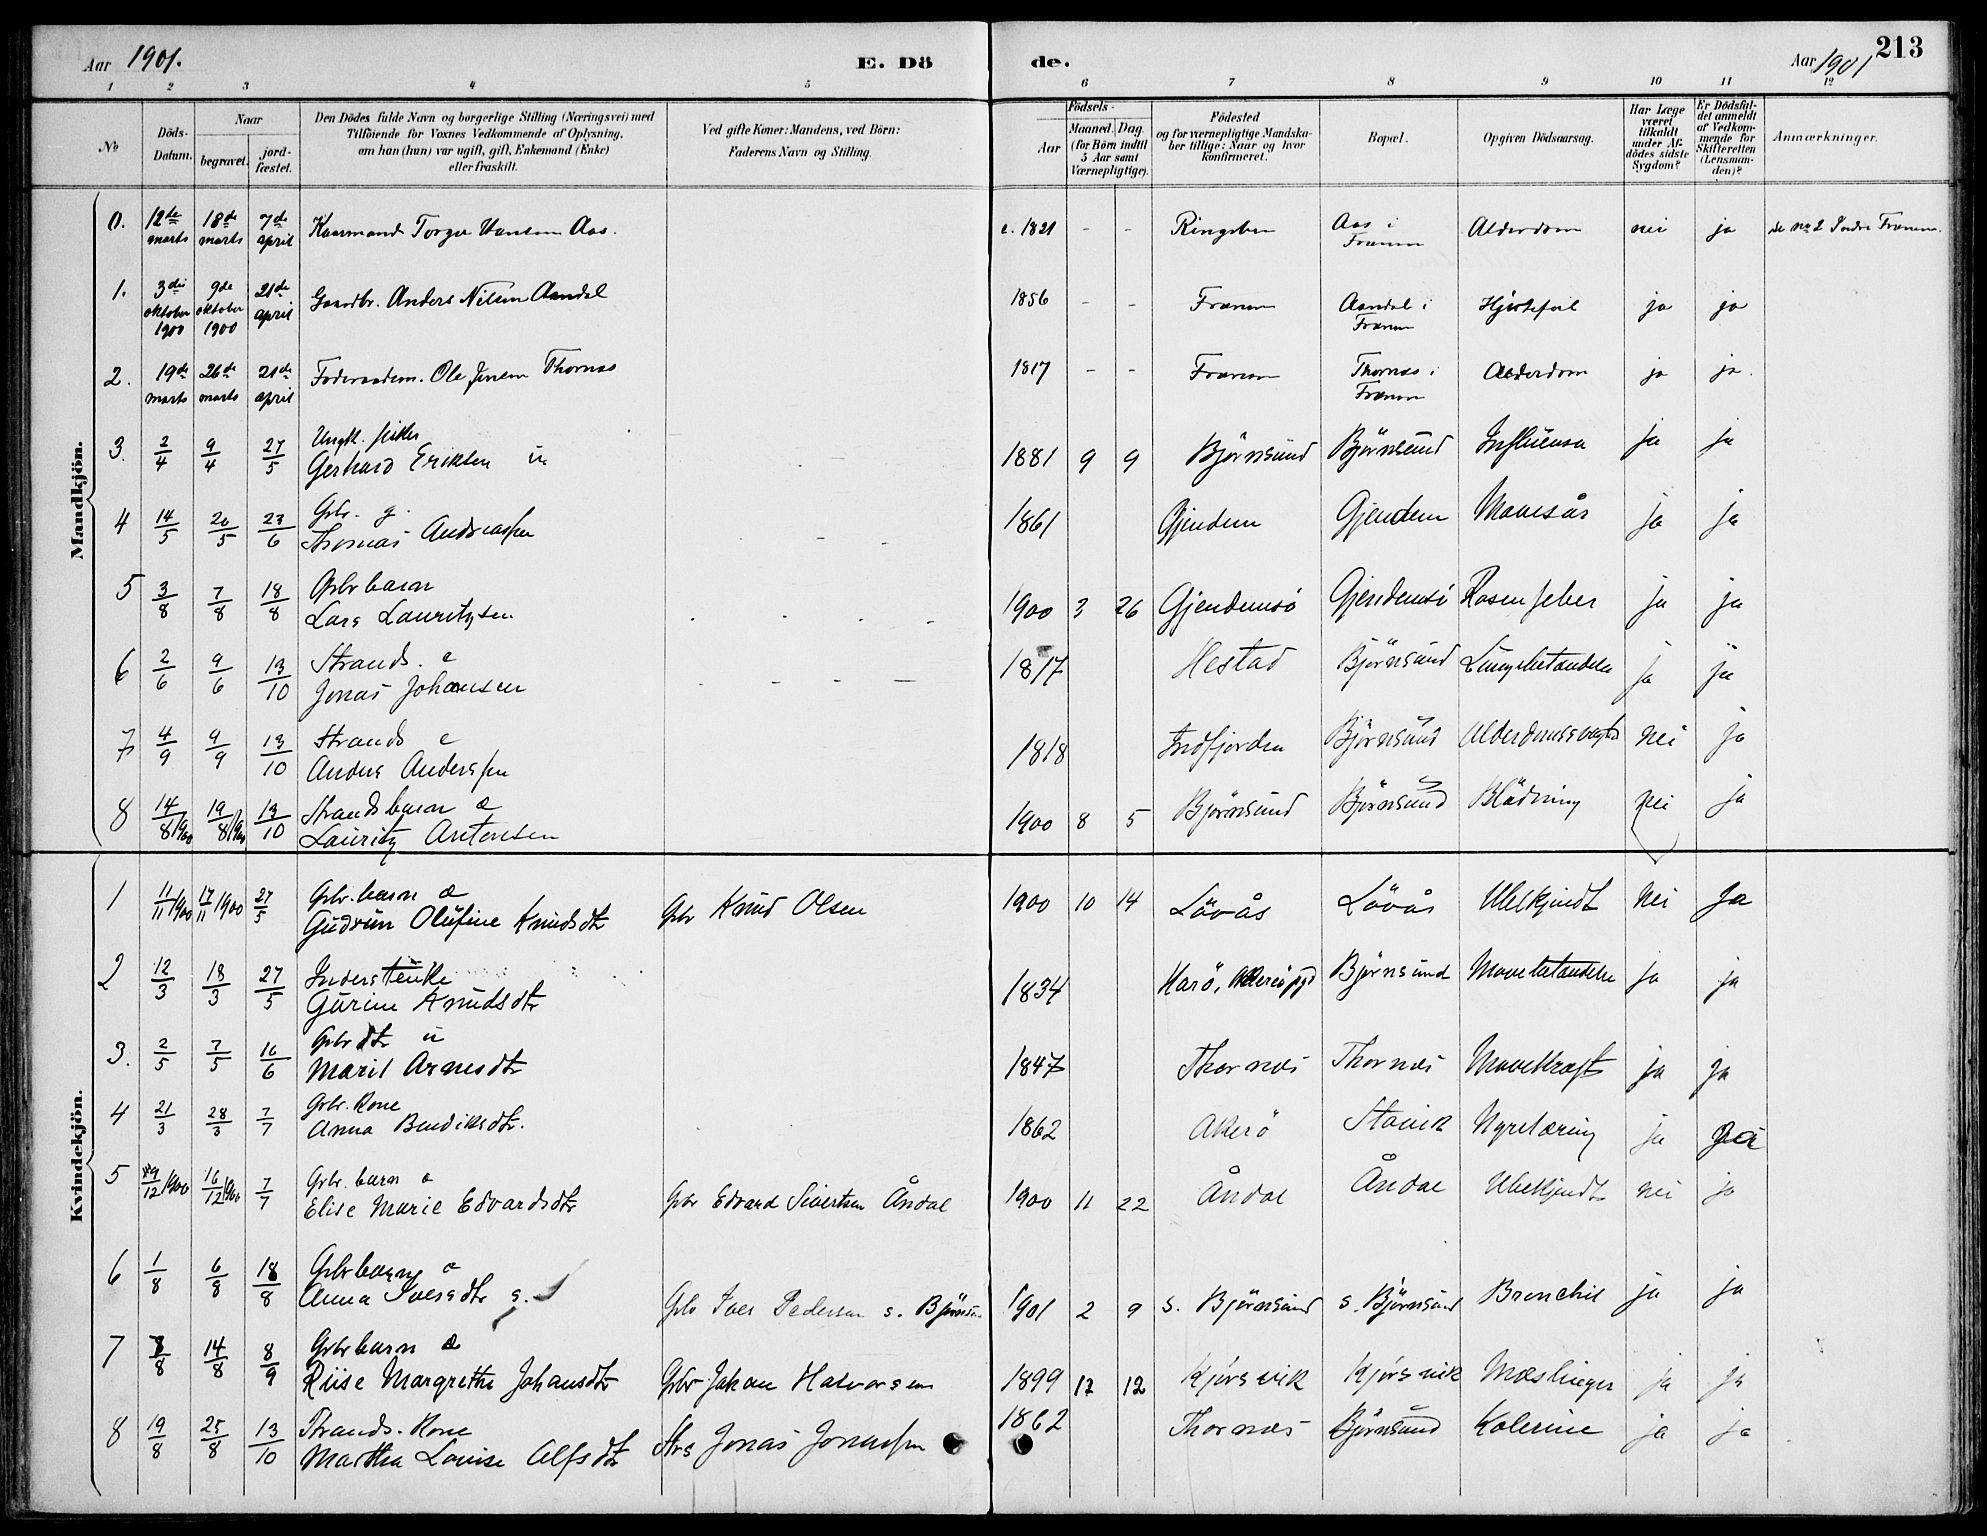 Aar 1901.
E. Dö
de.
Aar 1901
213
1 2 3 4 5 6 7 8 9 10 11 12
No
Döds-Datum.
Naar
begravet.
jord-fæstet.
Den Dödes fulde Navn og borgerlige Stilling (Næringsvei) med
Tilföiende for Voxnes Vedkommende af Oplysning,
om han (hun) var ugift, gift, Enkemand (Enke)
eller fraskilt.
Ved gifte Koner: Mandens, ved Börn:
Faderens Navn og Stilling.
Födsels-
Aar
Maaned. Dag.
(for Börn indtil
5 Aar samt
Værnepligtige).
Födested
og for værnepligtige Mandska-
ber tillige: Naar og hvor
konfirmeret.
Bopæl.
Opgiven Dödsaarsag.
Har Læge
været
tilkaldt
under Af-
dödes sidste
Sygdom?
Er Dödsfal-
det anmeldt
af Vedkom-
mende for
Skifteretten
(Lensman-
den)?
Anmærkninger.
Mandkjön.
0. 12de marts 18de marts 7de april Kaarmand Torger Hansen Aas. c. 1821 - - Ringeben Aas i Frænen Alderdom nei ja
1. 3die oktober 1900 9de oktober 1900 21de april Gaardbr. Anders Nilsen Aandal 1856 - - Frænen Aandal i Frænen Hjertefeil ja ja
2. 19de marts 26de marts 21de april Foderaadsm. Ole Jensen Thornæs 1817 - - Frænen Thornæs i Frænen Alderdom ja ja.
3. 2/4 9/4 27/5 Ungk. fisker
Gerhard Eriksen u 1881 9 9 Björnsund Björnsund Influensa ja ja
4 14/5 20/5 23/6 Grbr. g.
Thomas Andreassen 1861 Gjendem Gjendem Mavesår ja ja
5 3/8 7/8 18/8 Grbr barn
Lars Lauritzsen 1900 3 26 Gjendemsö Gjendemsö Rosenfeber ja ja
6 2/6 9/6 13/10 Strands. e
Jonas Johansen 1817 Hestad Björnsund Lungebetændelse ja ja
7 4/9 9/9 13/10 Strands e
Anders Anderssen 1818 Indfjorden Björnsund Alderdomssvaghd nei ja
8 14/8 1900 19/8 1900 13/10 Strandsbarn æ
Lauritz Antonsen 1900 8 5 Björnsund Björnsund Blödning nei ja
Kvindekjön.
1 11/11 1900 17/11 1900 27/5 Grbr. barn æ
Gudrun Olufine Knudsdtr Gbr Knud Olsen 1900 10 14 Lövås Lövås Ubekjendt nei Ja
2 12/3 18/3 27/5 Inderstenke
Gurine Knudsdtr 1834 Harö, Björnsund Mavebetændelse ja ja
3. 2/5 7/5 16/6 Grbr dtr u
Marit Arnesdtr 1847 Thornæs Thornæs Mavekræft ja ja
4 21/3 28/3 7/7 Grbr. Kone
Anna Bendiksdtr. 1862 Akerö Stavik Nyretæring ja ja
5 9/12 1900 16/12 1900 7/7 Grbr. barn æ
Elise Marie Edvardsdtr Gbr Edvard Sivertsen Åndal 1900 11 22 Åndal Åndal Ubekjendt nei ja
6 1/8 6/8 18/8 Grbr barn æ
Anna Iversdtr s. Grbr Iver Pedersen s. Björnsun 1901 2 9 s. Björnsund s. Björnsund Bronchit ja ja
7 8/8 14/8 8/9 Grbr barn æ
Riise Margrethe Johansdtr Grbr Johan Halvorsen 1899 12 12 Kjörsvik Kjörsvik Mæslinger ja ja
8 19/8 25/8 13/10 Strands. Kone
Martha Louise Alfsdtr Strs Jonas Jonassen 1862 Thornæs Björnsund Kolerine ja ja